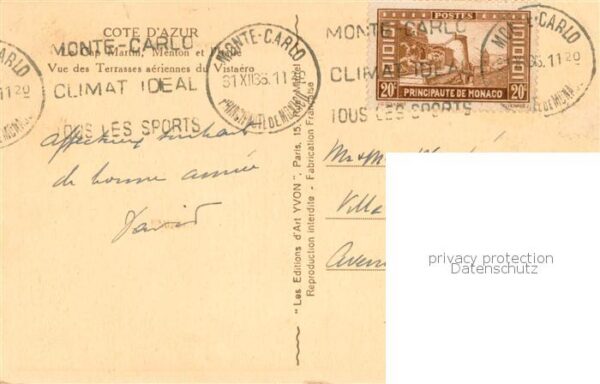 COTE D'AZUR
Le Cap Martin, Menton et l'Italie
Vue des Terrasses aériennes du Vistaëro
MONTE-CARLO
CLIMAT IDEAL
TOUS LES SPORTS
MONTE-CARLO
31 XII 36. 11 20
PRINCIPAUTÉ DE MONACO
MONTE-CARLO
CLIMAT IDEAL
TOUS LES SPORTS
POSTES
20c 20c
PRINCIPAUTÉ DE MONACO
MONTE-CARLO
36. 11 20
CARLO
11 20
affectueux souhaits
de bonne année
David
"Les Editions d'Art YVON", Paris, 15, rue Martel
Reproduction interdite - Fabrication Française
Mr & M
Villa
Avenue
privacy protection
Datenschutz